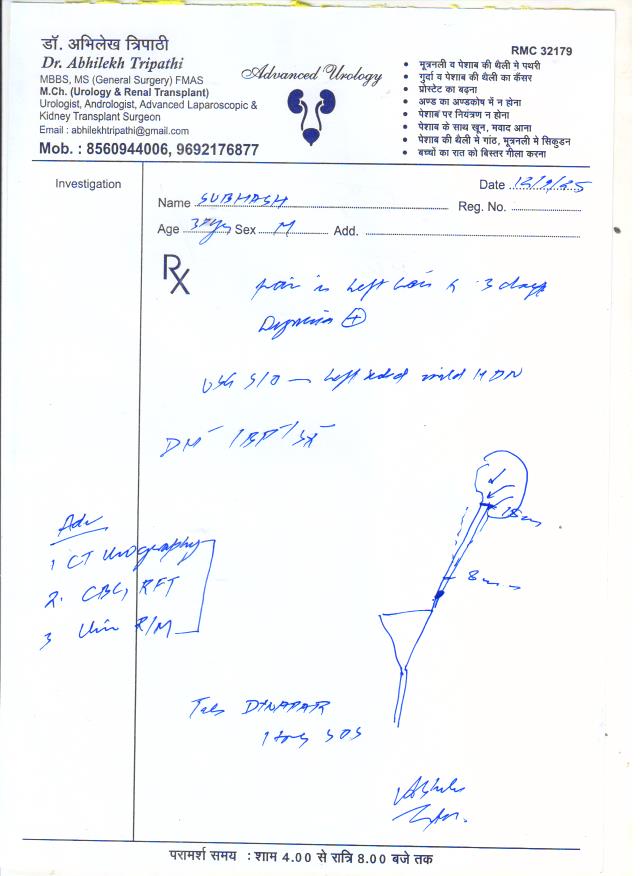 डॉ. अभिलेख त्रिपाठी
Dr. Abhilekh Tripathi
MBBS, MS (General Surgery) FMAS
M.Ch. (Urology & Renal Transplant)
Urologist, Andrologist, Advanced Laparoscopic &
Kidney Transplant Surgeon
Email : abhilekhtripathi@gmail.com
Mob. : 8560944006, 9692176877
Advanced Urology
RMC 32179
• मूत्रनली व पेशाब की थैली मे पथरी
• गुर्दा व पेशाब की थैली का कैंसर
• प्रोस्टेट का बढ़ना
• अण्ड का अण्डकोष में न होना
• पेशाब पर नियंत्रण न होना
• पेशाब के साथ खून, मवाद आना
• पेशाब की थैली मे गांठ, मूत्रनली मे सिकुडन
• बच्चों का रात को बिस्तर गीला करना
Investigation
Date
Name SUBHASH Reg. No.
Age Sex M Add.
Rx
pain in Left 3 days
Dysuria +
USG S/O – Left sided mild HDN
Adv
1, CT Urography
2. CBC, RFT
3 Urine R/M
8mm
Tab DYNAPAR
SOS
परामर्श समय : शाम 4.00 से रात्रि 8.00 बजे तक